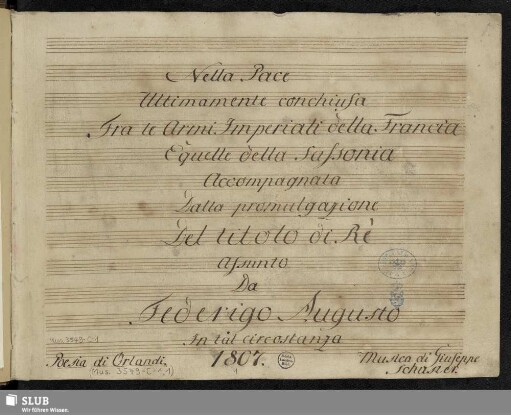 Nella Pace
Ultimamente conchiusa
Fra le Armi Imperiali della Francia
E quelle della Sassonia
Accompagnata
Dalla promulgazione
Del titolo di Rè
assunto
Da
Federigo Augusto
In tal circostanza
1807.
Poesia di Orlandi.
Musica di Giuseppe
Schuster.
(Mus. 3549-D-1,1)
SLUB
Wir führen Wissen.